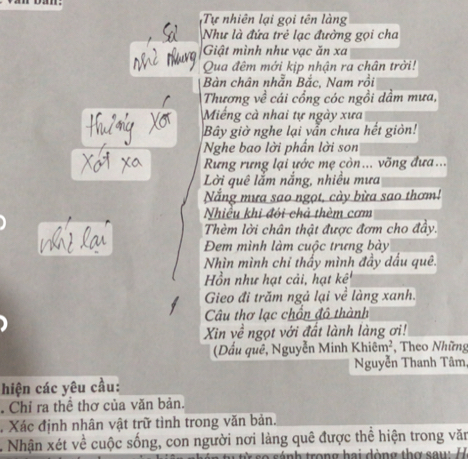 Tự nhiên lại gọi tên làng
Như là đứa trẻ lạc đường gọi cha
Giật mình như vạc ăn xa
Qua đêm mới kịp nhận ra chân trời!
Bàn chân nhẵn Bắc, Nam rồi
Thương về cái cổng cóc ngồi dầm mưa,
Miếng cà nhai tự ngày xưa
Bây giờ nghe lại vẫn chưa hết giòn!
Nghe bao lời phấn lời son
Rưng rưng lại ước mẹ còn... võng đưa...
Lời quê lắm nắng, nhiều mưa
Nắng mưa sao ngọt, cày bừa sao thơm!
Nhiều khi đói chả thèm cơm
Thèm lời chân thật được đơm cho đầy.
Đem mình làm cuộc trưng bày
Nhìn mình chỉ thấy mình đầy dấu quê.
Hồn như hạt cải, hạt kê¹
Gieo đi trăm ngả lại về làng xanh.
Câu thơ lạc chốn đô thành
Xin về ngọt với đất lành làng ơi!
(Dấu quê, Nguyễn Minh Khiêm², Theo Những
Nguyễn Thanh Tâm,
nhớ nhung
thương xót
xót xa
nhớ lại
hiện các yêu cầu:
. Chỉ ra thể thơ của văn bản.
. Xác định nhân vật trữ tình trong văn bản.
. Nhận xét về cuộc sống, con người nơi làng quê được thể hiện trong văn
so sánh trong hai dòng thơ sau: H